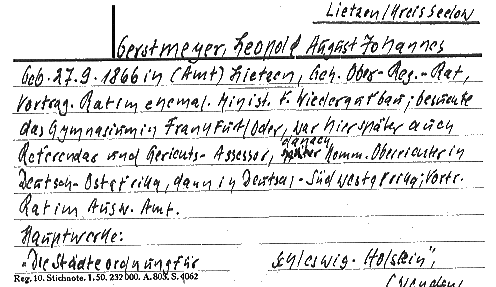 Lietzen/Kreis Seelow
Gerstmeyer, Leopold August Johannes
Geb. 27.9.1866 in (Amt) Lietzen, Geh. Ober-Reg.-Rat,
Vortrag. Rat im ehemal. Minist. f. Wiederaufbau; besuchte
das Gymnasium in Frankfurt/Oder, war hier später auch
Referendar und Gerichts-Assessor, danach Komm. Oberrichter in
Deutsch-Ostafrika, dann in Deutsch-Südwestafrika; Vortr.
Rat im Ausw. Amt.
Hauptwerke:
"Die Städteordnung für Schleswig-Holstein",
Reg. 10. Stichnote. 1.50. 232000. A. 803. S. 4062